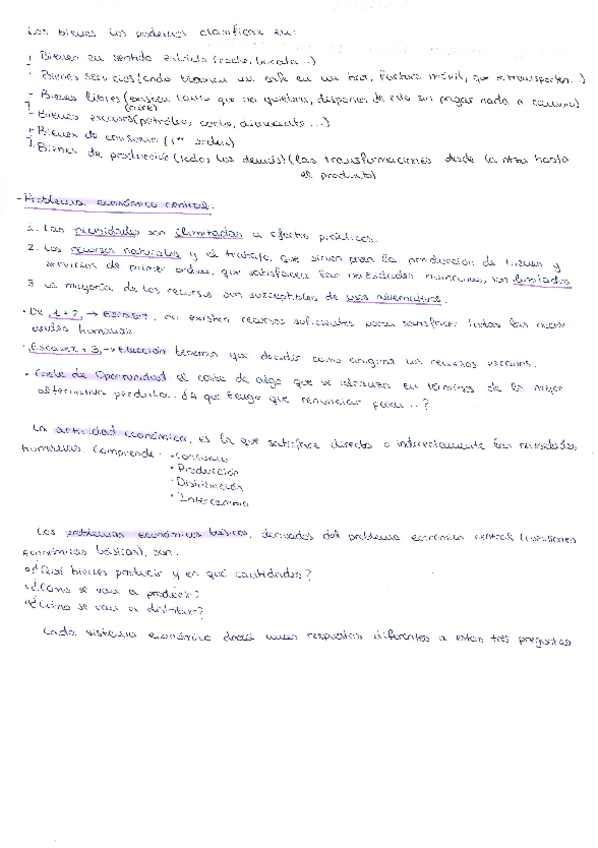 Los bienes los podemos clasificar en:
- Bienes en sentido estricto (coche, bocata...)
- Bienes servicios (cndo tomamos un café en un bar, factura móvil, que te transporten...)
- Bienes libres (existen tanto que no quiebra, dispones de ello sin pagar nada a cambio)
(aire)
- Bienes escasos (petróleo, coche, diamante...)
- Bienes de consumo (1er orden)
- Bienes de producción (todos los demás) (las transformaciones desde la mina hasta
el producto)
- Problema económico central:
1. Las necesidades son ilimitadas a efectos prácticos.
2. Los recursos naturales y el trabajo, que sirven para la producción de bienes y
servicios de primer orden, que satisfacen las necesidades humanas, son limitados
3. La mayoría de los recursos son susceptibles de usos alternativos.
· De 1 + 2, → Escasez, no existen recursos suficientes para satisfacer todas las nece-
sidades humanas
· Escasez + 3, → Elección tenemos que decidir como asignar los recursos escasos.
· Coste de Oportunidad el coste de algo que se valoriza en términos de la mejor
alternativa perdida. ¿A que tengo que renunciar para...?
La actividad económica, es la que satisface directa o indirectamente las necesidades
humanas. Comprende: · Consumo
· Producción
· Distribución
· Intercambio
Los problemas económicos básicos, derivados del problema económico central (cuestiones
económicas básicas), son:
· ¿Qué bienes producir y en qué cantidades?
· ¿Cómo se van a producir?
· ¿Cómo se van a distribuir?
Cada sistema económico dará unas respuestas diferentes a estas tres preguntas